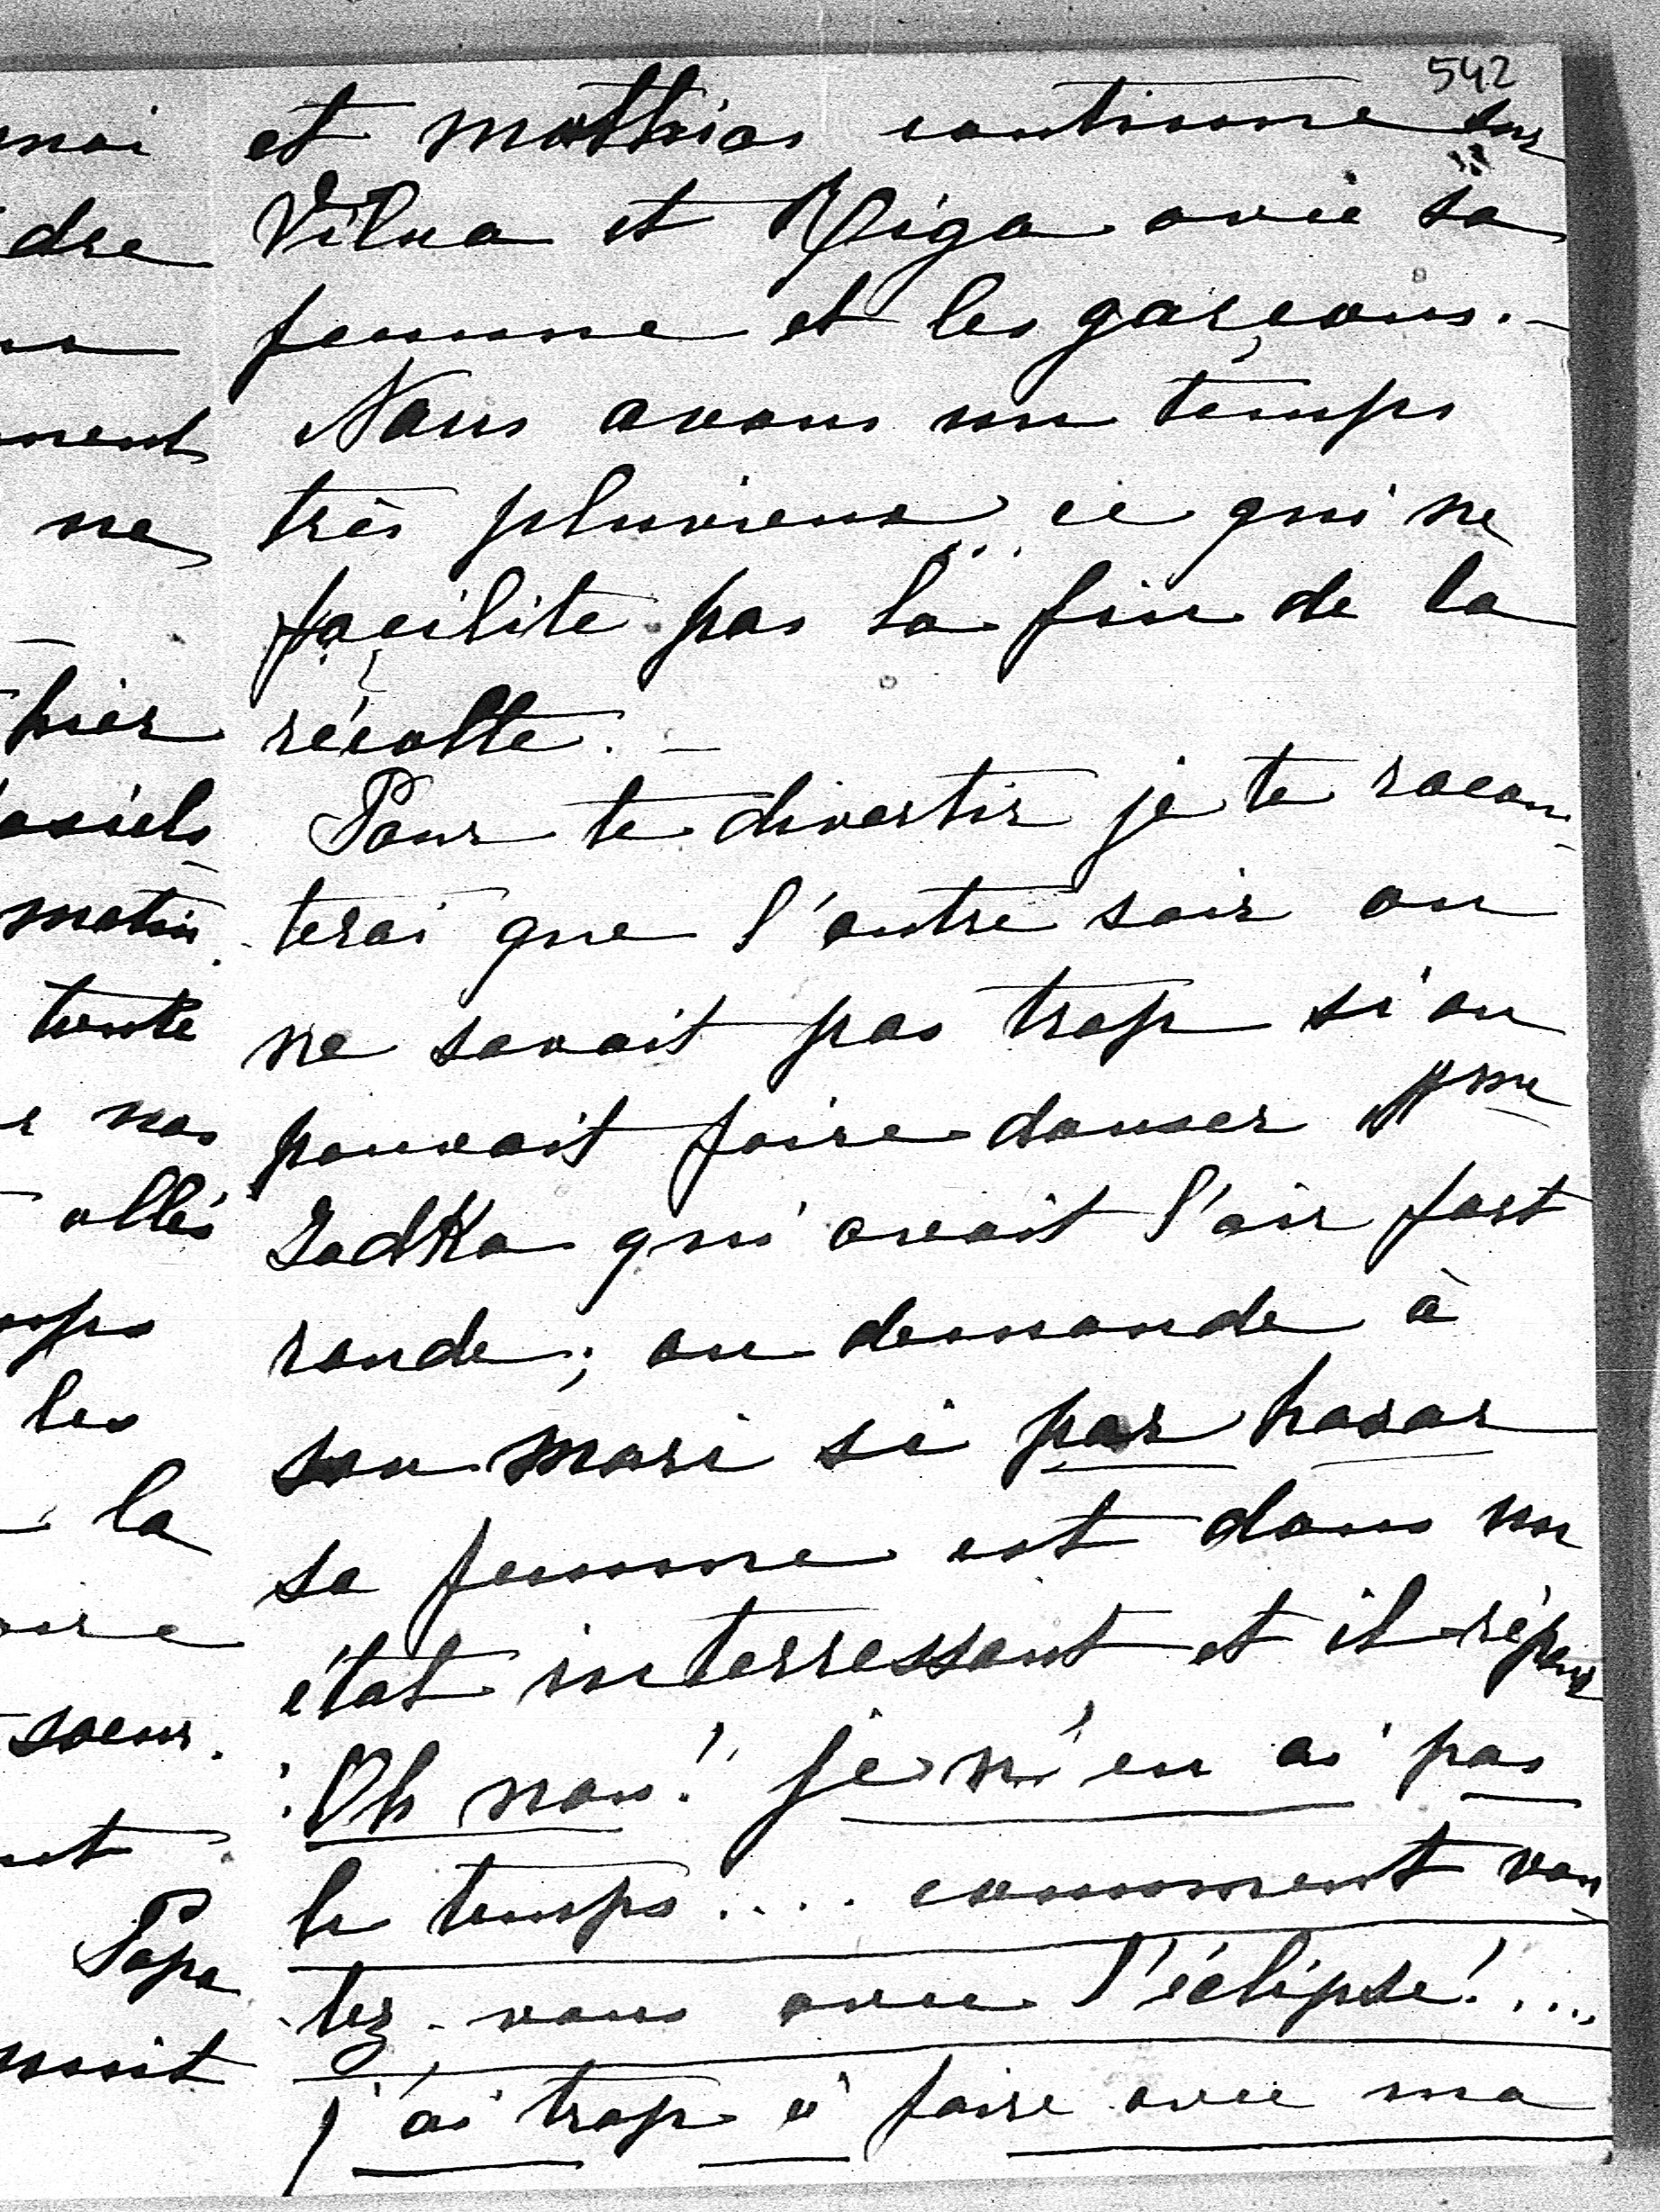 542
et Mathias continue sur
Vilna et Riga avec sa
femme et les garçons. —
Nous avons un temps
très pluvieux... ce qui ne
facilite pas la fin de la
récolte. —
Pour te divertir je te racon-
terai que l'autre soir on
ne savait pas trop si on
pouvait faire danser Mme
Jadka qui avait l'air fort
ronde; on demande à
son mari si par hasar
sa femme est dans un
état interressant et il répond
: Oh non! je n'en ai pas
le temps.... comment vou-
lez-vous avec l'éclipse!....
j'ai trop à faire avec ma
moi
dre
ment
ne
hier
matin.
tante
nos
allés
les
la
soeur.
Papa